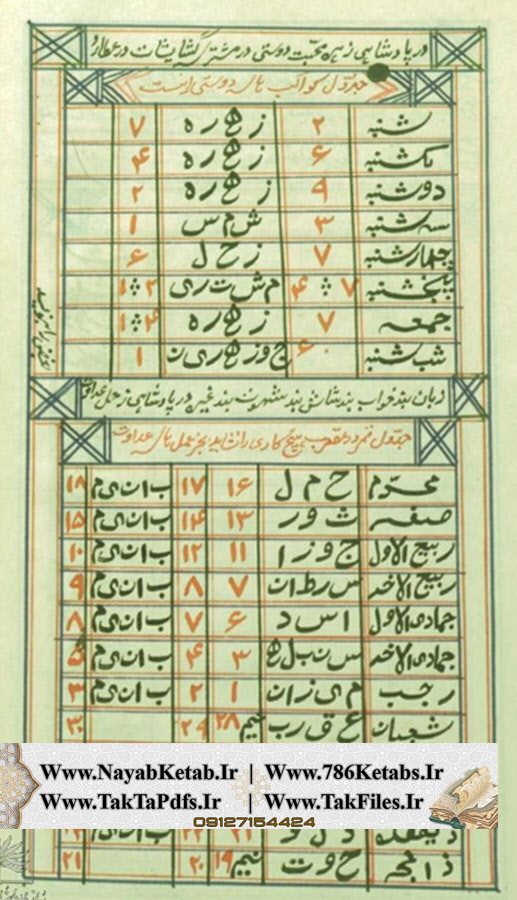 در پادشاهی زهره محبت دوستی در مشتری گشایشات در عطارد
جدول کواکب برای دوستی اینست
شنبه ۲ ز ه ر ه ۷
یکشنبه ۶ ز ه ر ه ۴
دوشنبه ۹ ز ه ر ه ۲
سه شنبه ۳ ش م س ۱
چهارشنبه ۷ ز ح ل ۶
پنجشنبه ۷ ۴ م ش ت ر ی ۲ ۱
جمعه ۷ ز ه ر ه ۴ ۱
شب شنبه ۶ ج و ز ه ر ی ن ۱
زبان بند خواب بند شاش بند شهوت بند غیره در پادشاهی زحل عداوت
جدول قمر در عقرب هیچ کاری را نشاید بجز عمل برای عداوت
محرم ح م ل ۱۶ ۱۷ ب ا ن ی م ۱۸
صفر ث و ر ۱۳ ۱۴ ب ا ن ی م ۱۵
ربیع الاول ج و ز ا ۱۱ ۱۲ ب ا ن ی م ۱۰
ربیع الاخر س ر ط ا ن ۷ ۸ ب ا ن ی م ۹
جمادی الاول ا س د ۶ ۷ ب ا ن ی م ۸
جمادی الاخر س ن ب ل ه ۳ ۴ ب ا ن ی م ۵
رجب م ی ز ا ن ۱ ۲ ب ا ن ی م ۳
شعبان ع ق ر ب نیم ۲۸ ۲۹ ۳۰
www.NayabKetab.Ir | Www.786Ketabs.Ir
Www.TakTaPdfs.Ir | Www.TakFiles.Ir
09127154424
ذیقعده د ل و ب ا ن ی م
ذالحجه ح و ت نیم ۱۹ ۲۰ ۲۱